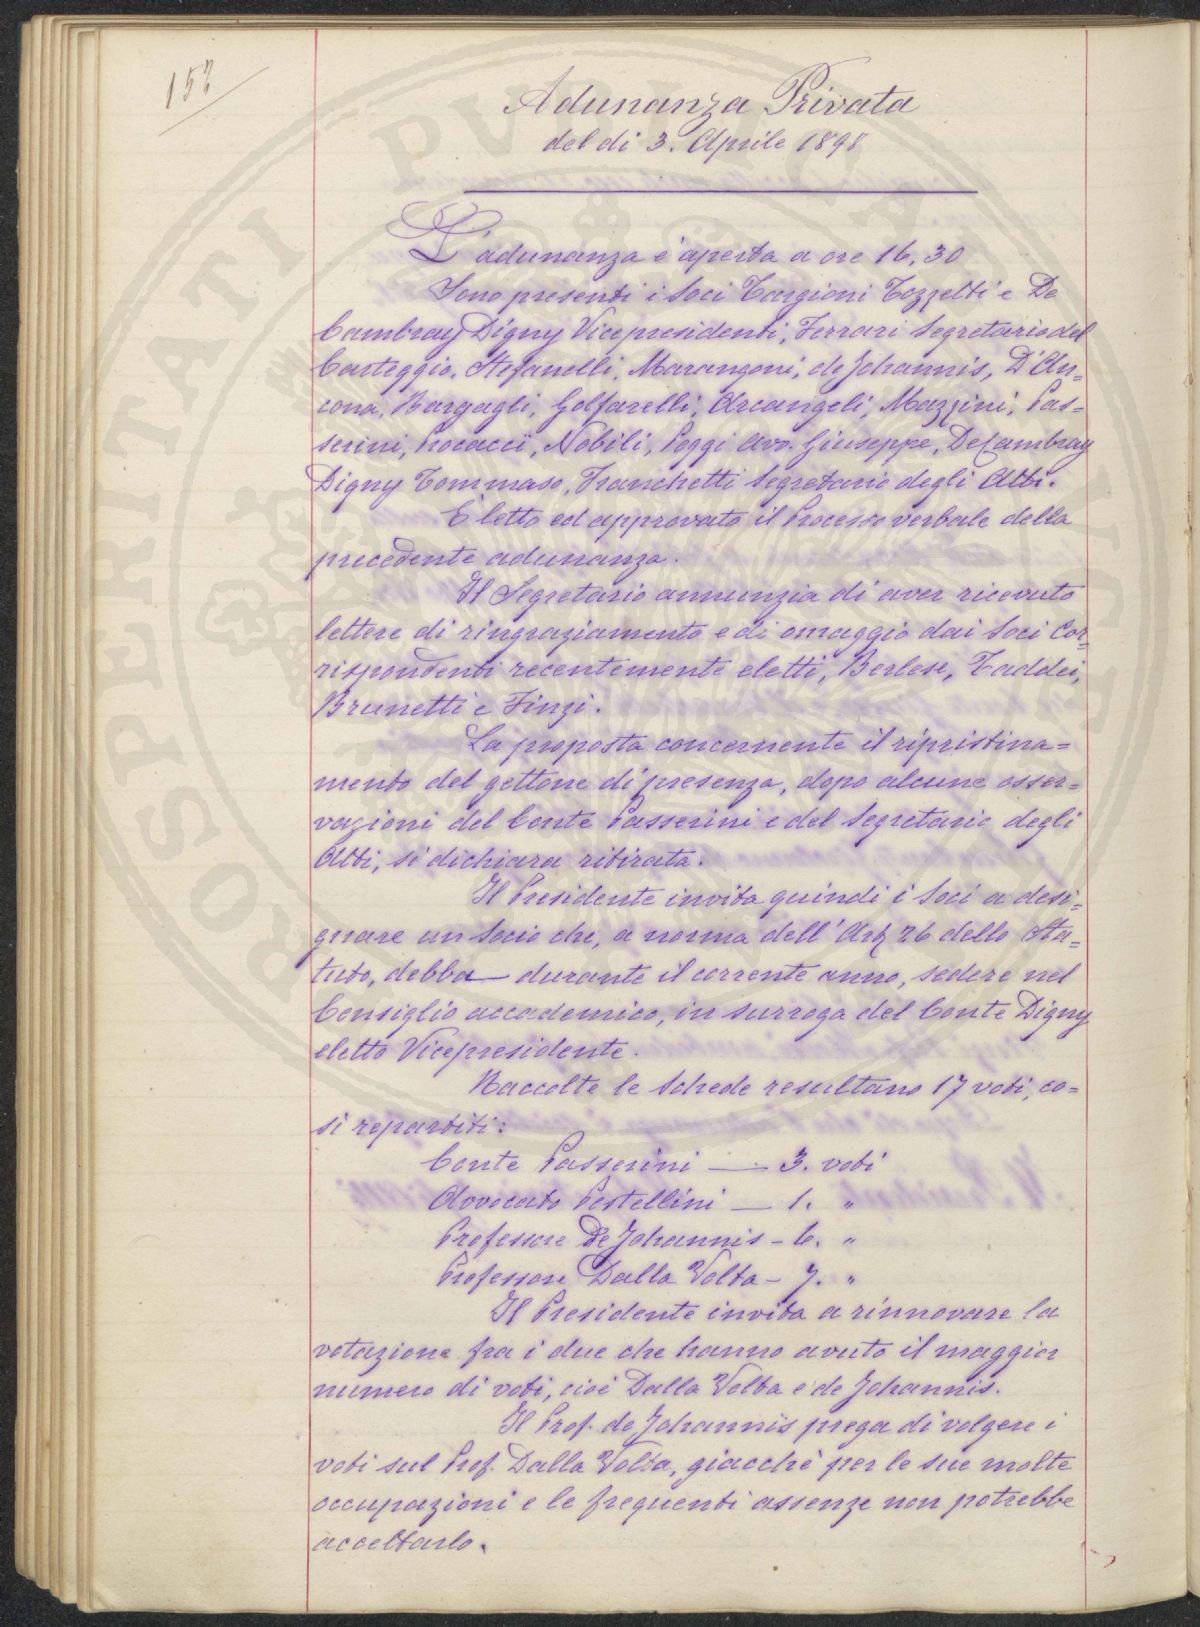 152
Adunanza Privata
del dì 3. Aprile 1898
L'adunanza è aperta a ore 16,30
Sono presenti i Soci Targioni Tozzetti e De
Cambray Digny Vicepresidenti, Ferrari Segretario del
Carteggio, Stefanelli, Marangoni, de Johannis, D'An=
cona, Bargagli, Golfarelli, Arcangeli, Mazzini, Pas=
serini, Procacci, Nobili, Poggi Avv. Giuseppe, De Cambray
Digny Tommaso, Franchetti Segretario degli Atti.
È letto ed approvato il Processo verbale della
precedente adunanza.
Il Segretario annunzia di aver ricevuto
lettere di ringraziamento e di omaggio dai Soci Cor=
rispondenti recentemente eletti, Berlese, Taddei,
Brunetti e Finzi.
La proposta concernente il ripristina=
mento del gettone di presenza, dopo alcune osser=
vazioni del Conte Passerini e del Segretario degli
Atti, si dichiara ritirata.
Il Presidente invita quindi i Soci a desi=
gnare un Socio che, a norma dell'Art 26 dello Sta=
tuto, debba durante il corrente anno, sedere nel
Consiglio accademico, in surroga del Conte Digny
eletto Vicepresidente.
Raccolte le Schede resultano 17 voti, co=
sì repartiti:
Conte Passerini — 3. voti
Avvocato Pestellini — 1. "
Professore De Johannis - 6. "
Professore Dalla Volta - 7. "
Il Presidente invita a rinnovare la
votazione fra i due che hanno avuto il maggior
numero di voti, cioè Dalla Volta e de Johannis.
Il Prof. de Johannis prega di volgere i
voti sul Prof. Dalla Volta, giacchè per le sue molte
occupazioni e le frequenti assenze non potrebbe
accettarlo.
PROSPERITATI PVBLICAE AVGENDAE